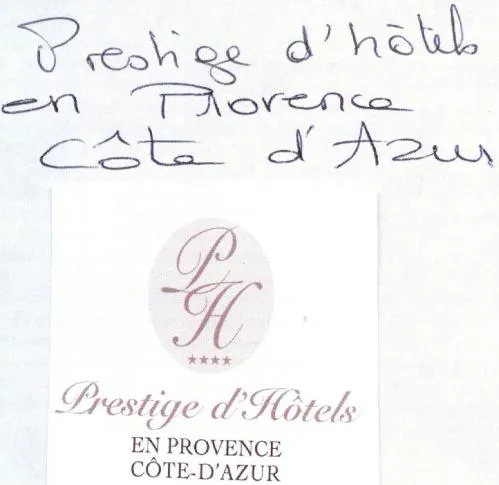 Prestige d'hôtels
en Provence
Côte d'Azur
PH
★★★★
Prestige d'Hôtels
EN PROVENCE
CÔTE-D'AZUR